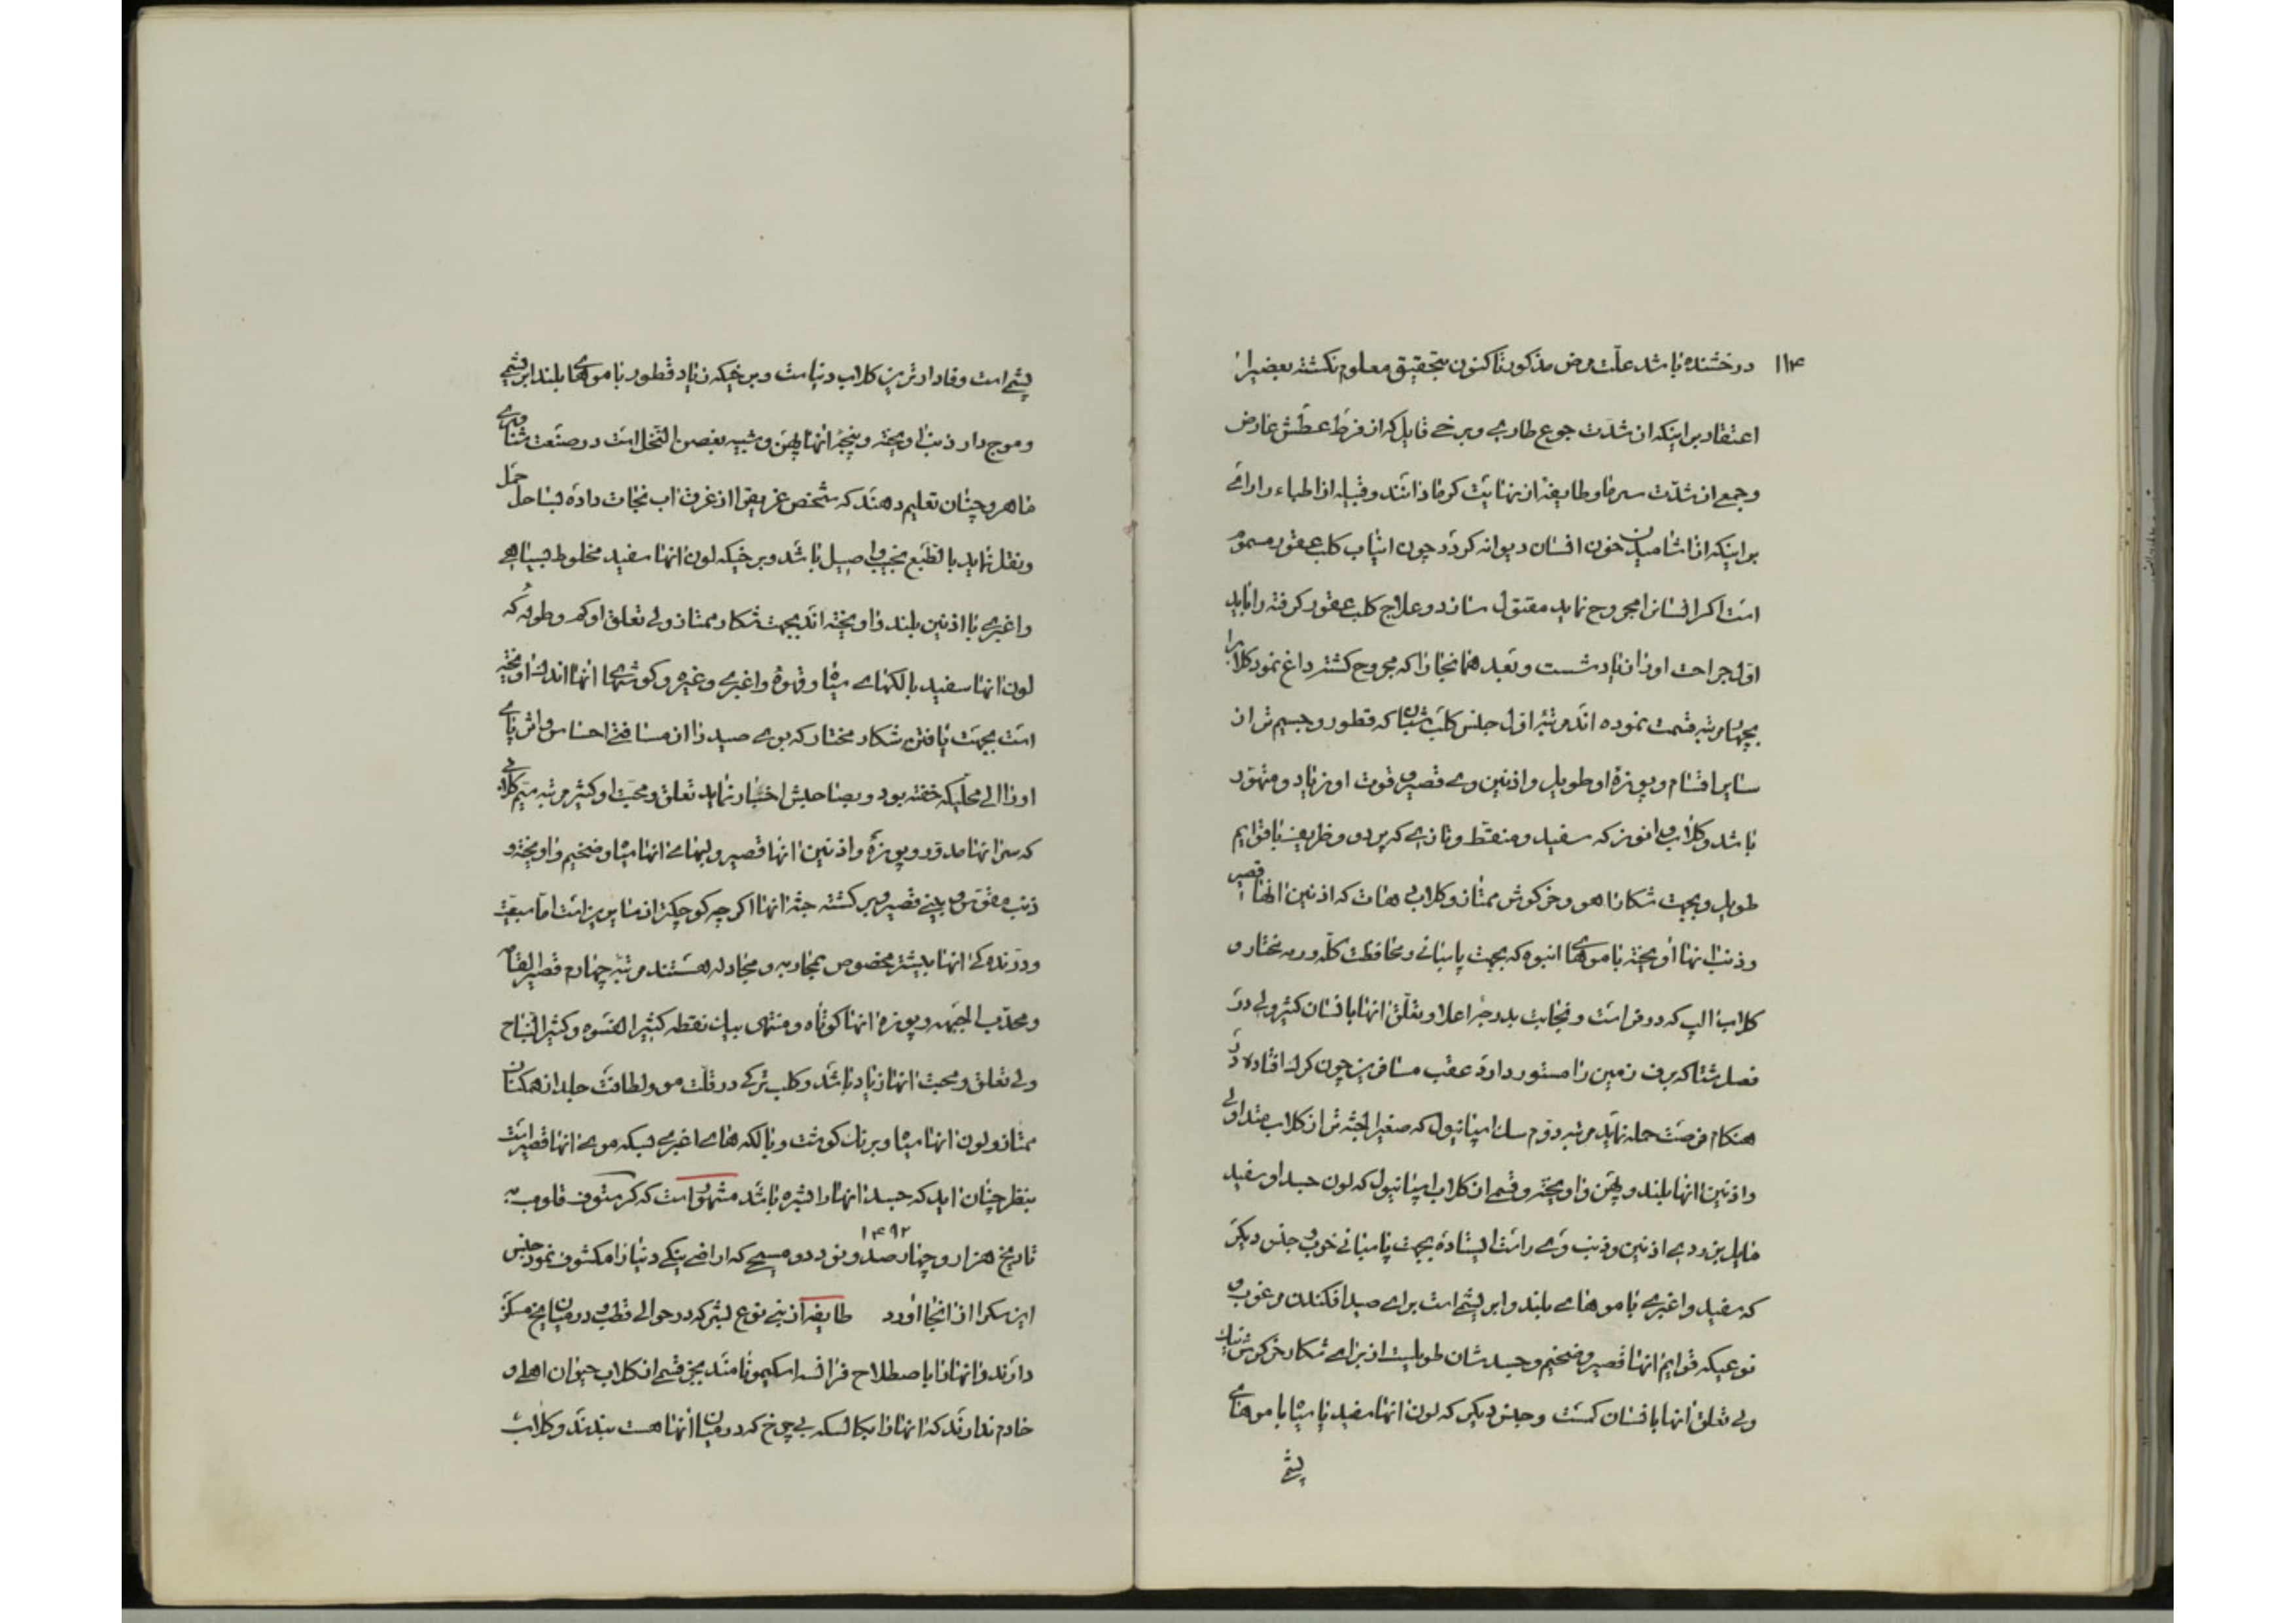 ۱۱۴
درخشنده باشد علّت مرض مذکور تا کنون بتحقیق معلوم نکشته بعضیرا
اعتقاد بر اینکه از شدّت جوع طاری و برخی قایل که از فرط عطش عارض
و جمعی از شدّت سرما و طایفه از نهایت کرما دانند و قبیله از اطباء را رائی
بر اینکه از اشامیدن خون انسان دیوانه کردد چون انیاب کلب عقور مسموم
است اکر انسانرا مجروح نماید مقتول سازد و علاج کلب عقور کرفته را باید
اول جراحت او را زیاد شست و بعد همانجا را که مجروح کشته داغ نمود کلابرا
بچهار مرتبه قسمت نموده اند مرتبه اول جنس کلب شبان که قطور و جسیم تر از
سایر اقسام و پوزۀ او طویل و اذنین وی قصیر و قوت او زیاد و متهوّر
باشد و کلاب که سفید و منقط و تازی که پر دو و ظریف با قوایم
طویل و بجهت شکار اهو و خرکوش ممتاز و کلابی هات که اذنین انها قصیر
و ذنب انها اویخته با موهای انبوه که بجهت پاسبانی و محافظت کلّه و رمه مختار و
کلاب الپ که در فراست و نجابت بدرجه اعلا و تعلّق انها با انسان کثیر ولی در
فصل شتا که برف زمین را مستور دارد عقب مسافرین چون کرک افتاده در
هنکام فرصت حمله نماید مرتبه دوم سک اسپانیول که صغیر الجثه تر از کلاب اولی
و اذنین انها بلند و پهن و اویخته و قسمی از کلاب اسپانیول که لون جسد او سفید
مایل بزردی اذنین و ذنب وی راست ایستاده بجهت پاسبانی خوب و جنس دیکر
که سفید و اغبری با موهای بلند و ابریشمی است برای صید افکندن مرغوب و
نوعیکه قوایم انها قصیر و ضخیم و جسدشان طویلست از برای شکار خرکوش نیک
ولی تعلق انها با انسان کمست و جنس دیکر که لون انها سفید یا سیاه با موهای
پشمی
پشمی است وفادارترین کلاب دنیاست و برخیکه زیاد قطور با موهای بلند ابریشمی
و موج دار ذنب اویخته و پنجۀ انها پهن و شبیه بغصن النخل است در صنعت شناوری
ماهر و چنان تعلیم دهند که شخص غریقرا از غرق اب نجات داده بساحل حمل
و نقل نماید بالطبع نجیب و اصیل باشد و برخیکه لون انها سفید مخلوط بسیاهی
و اغبری با اذنین بلند و اویخته اند بجهت شکار ممتاز ولی تعلق او کم و طوله که
لون انها سفید با لکهای سیاه و قهوۀ و اغبری و غیره و کوشهای انها اندک اویخته
است بجهت یافتن شکار مختار که بوی صید را از مسافتی احساس و اثر پای
او را الی محلّیکه خفته بود و بصاحبش اخبار نماید تعلق و محبت او کثیر مرتبه سیم کلابی
که سر انها مدوّر و پوزۀ و اذنین انها قصیر و لبهای انها سیاه و ضخیم و اویخته و
ذنب مقوّس و بینی قصیر و بر کشته جثۀ انها اکر چه کوچکتر از سایرین است اما سبعیت
و درندکی انها بیشتر مخصوص بمحاربه و مجادله هستند مرتبه چهارم قصیر القامه
و محدّب الجبهه و پوزۀ انها کوتاه و منتهی بیک نقطه کثیر العشوه و کثیر النباح
ولی تعلق و محبت انها زیاد باشد و کلب ترکی در قلّت مو و لطافت جلد از همکنان
ممتاز و لون انها سیاه و برنک کوشت و با لکه های اغبری بسکه موی انها قصیر است
بنظر چنان اید که جسد انها را بشره باشد مشهور است که کرستوف قلومب به
۱۴۹۲
تاریخ هزار و چهار صد و نود دو مسیحی که اراضی ینکی دنیا را مکشوف نمود جنس
این سک را از انجا اورد طایفه از بنی نوع بشر که در حوالی قطب و در میان یخ مسکن
دارند و انها را باصطلاح فرانسه اسکیمو نامند بجز قسمی از کلاب حیوان اهلی و
خادم ندارند که انها را بکالسکه بی چرخ که در میان انها هست بندند و کلاب